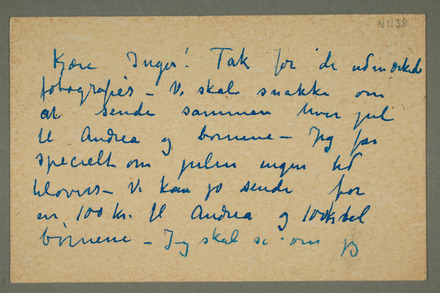 N1138
Kjære Inger! Tak for de udmærkede
fotografier – Vi skal snakke om
at sende sammen hver jul
til Andrea og børnene – Jeg får
specielt om julen ingen tid
tilovers – Vi kan jo sende for
en 100 kr. til Andrea og 100 kr til
børnene – Jeg skal se om